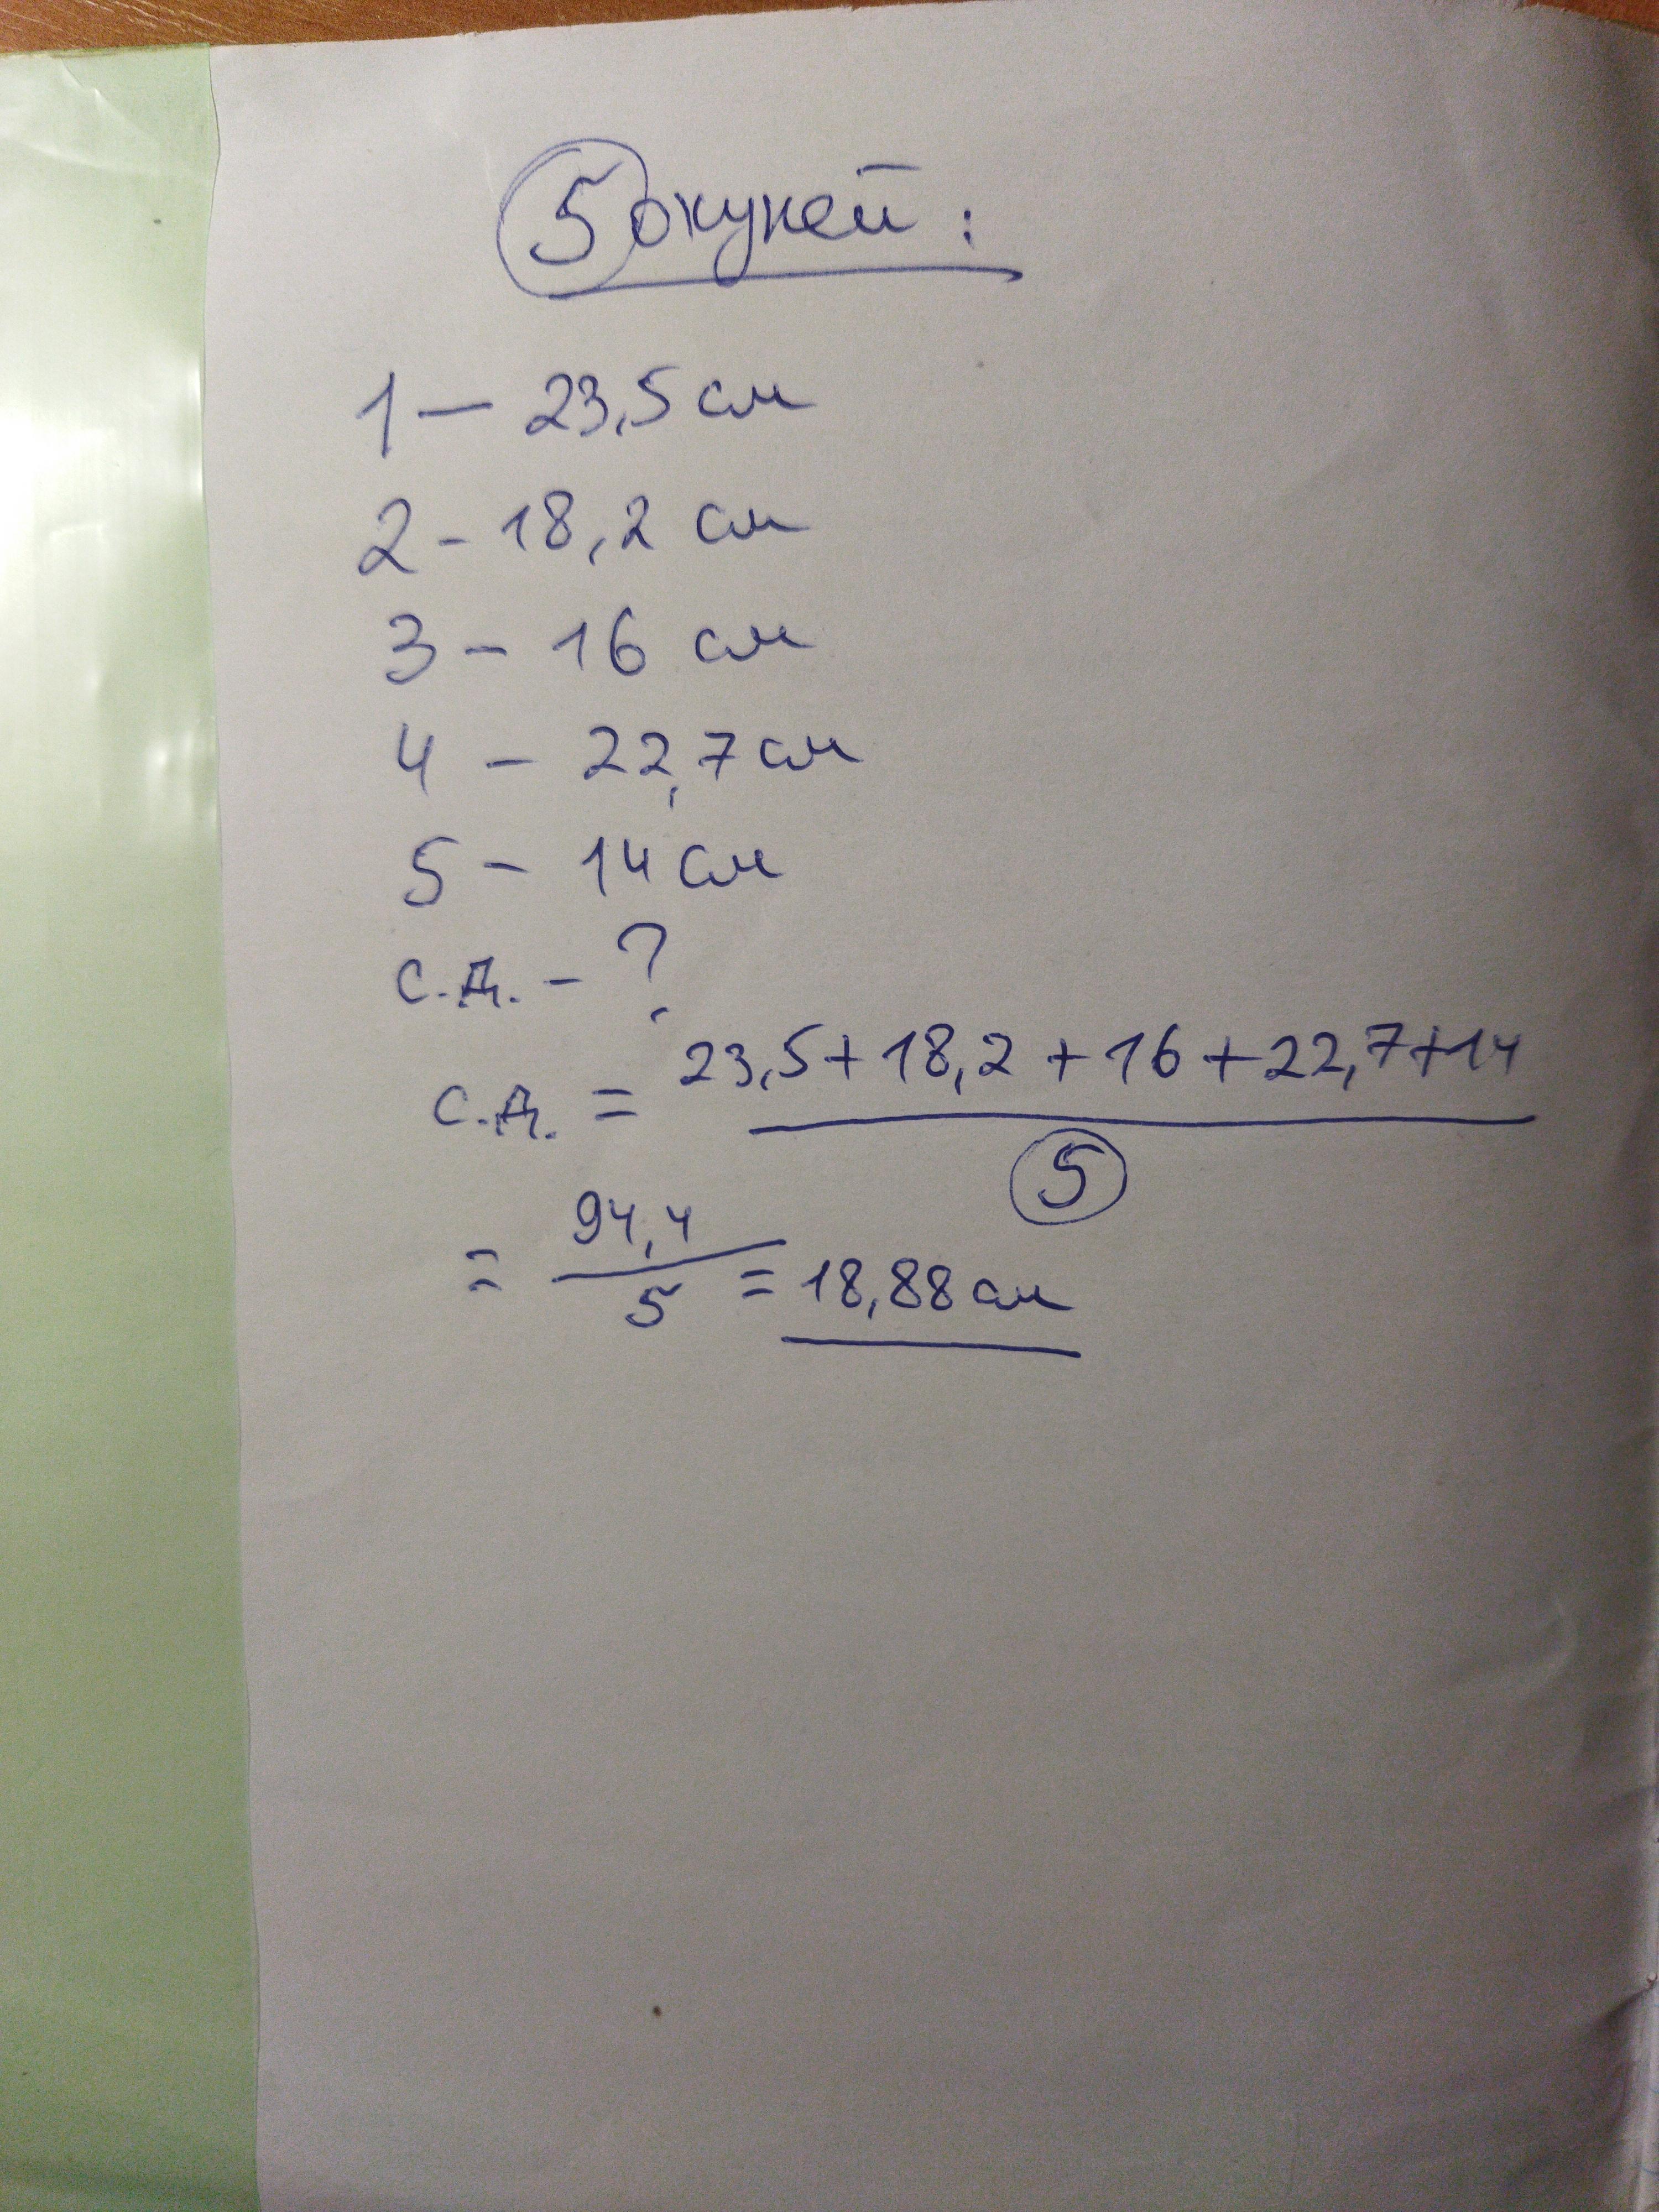 5 окуней:
1 — 23,5 см
2 - 18,2 см
3 - 16 см
4 - 22,7 см
5 - 14 см
с.д. - ?
с.д. = 23,5+18,2+16+22,7+14
5
= 94,4
5
= 18,88 см